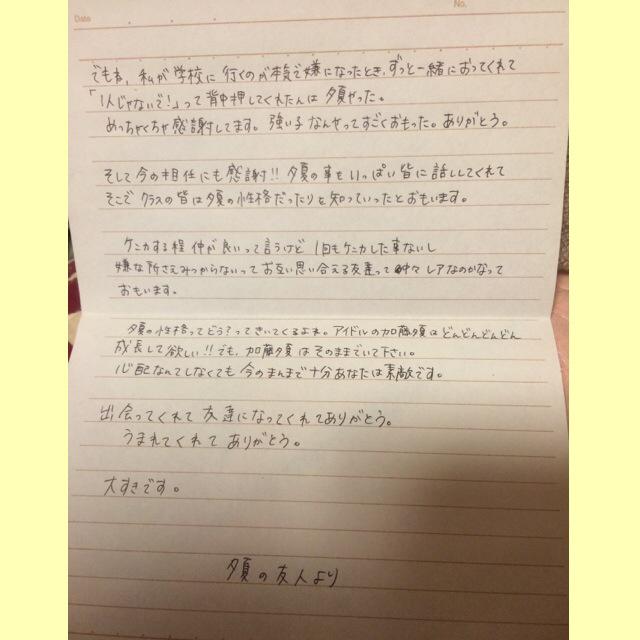 Date
No.
でもね、私が学校に行くのが本気で嫌になったとき、ずっと一緒におってくれて
「1人じゃないで!」って背中押してくれたんは夕夏やった。
めっちゃくちゃ感謝してます。強い子なんやってすごくおもった。ありがとう。
そして今の担任にも感謝!!夕夏の事をいっぱい皆に話ししてくれて
そこでクラスの皆は夕夏の性格だったりを知っていったとおもいます。
ケンカする程仲が良いって言うけど1回もケンカした事ないし
嫌な所さえみつからないってお互い思い合える友達って中々レアなのかなって
おもいます。
夕夏の性格ってどう?ってきいてくるよね。アイドルの加藤夕夏はどんどんどんどん
成長して欲しい!!でも、加藤夕夏はそのままでいて下さい。
心配なんてしなくても今のまんまで十分あなたは素敵です。
出会ってくれて友達になってくれてありがとう。
うまれてくれてありがとう。
大すきです。
夕夏の友人より